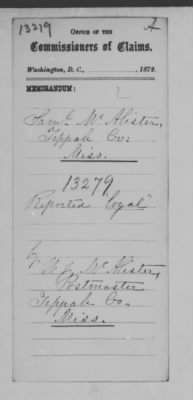 13279
A
OFFICE OF THE
Commissioners of Claims.
Washington, D. C., , 1872.
MEMORANDUM:
Saml. McAlister,
Tippah Co:
Miss.
13279
Reported "loyal"
McAlister,
Postmaster
Tippah Co.
Miss.